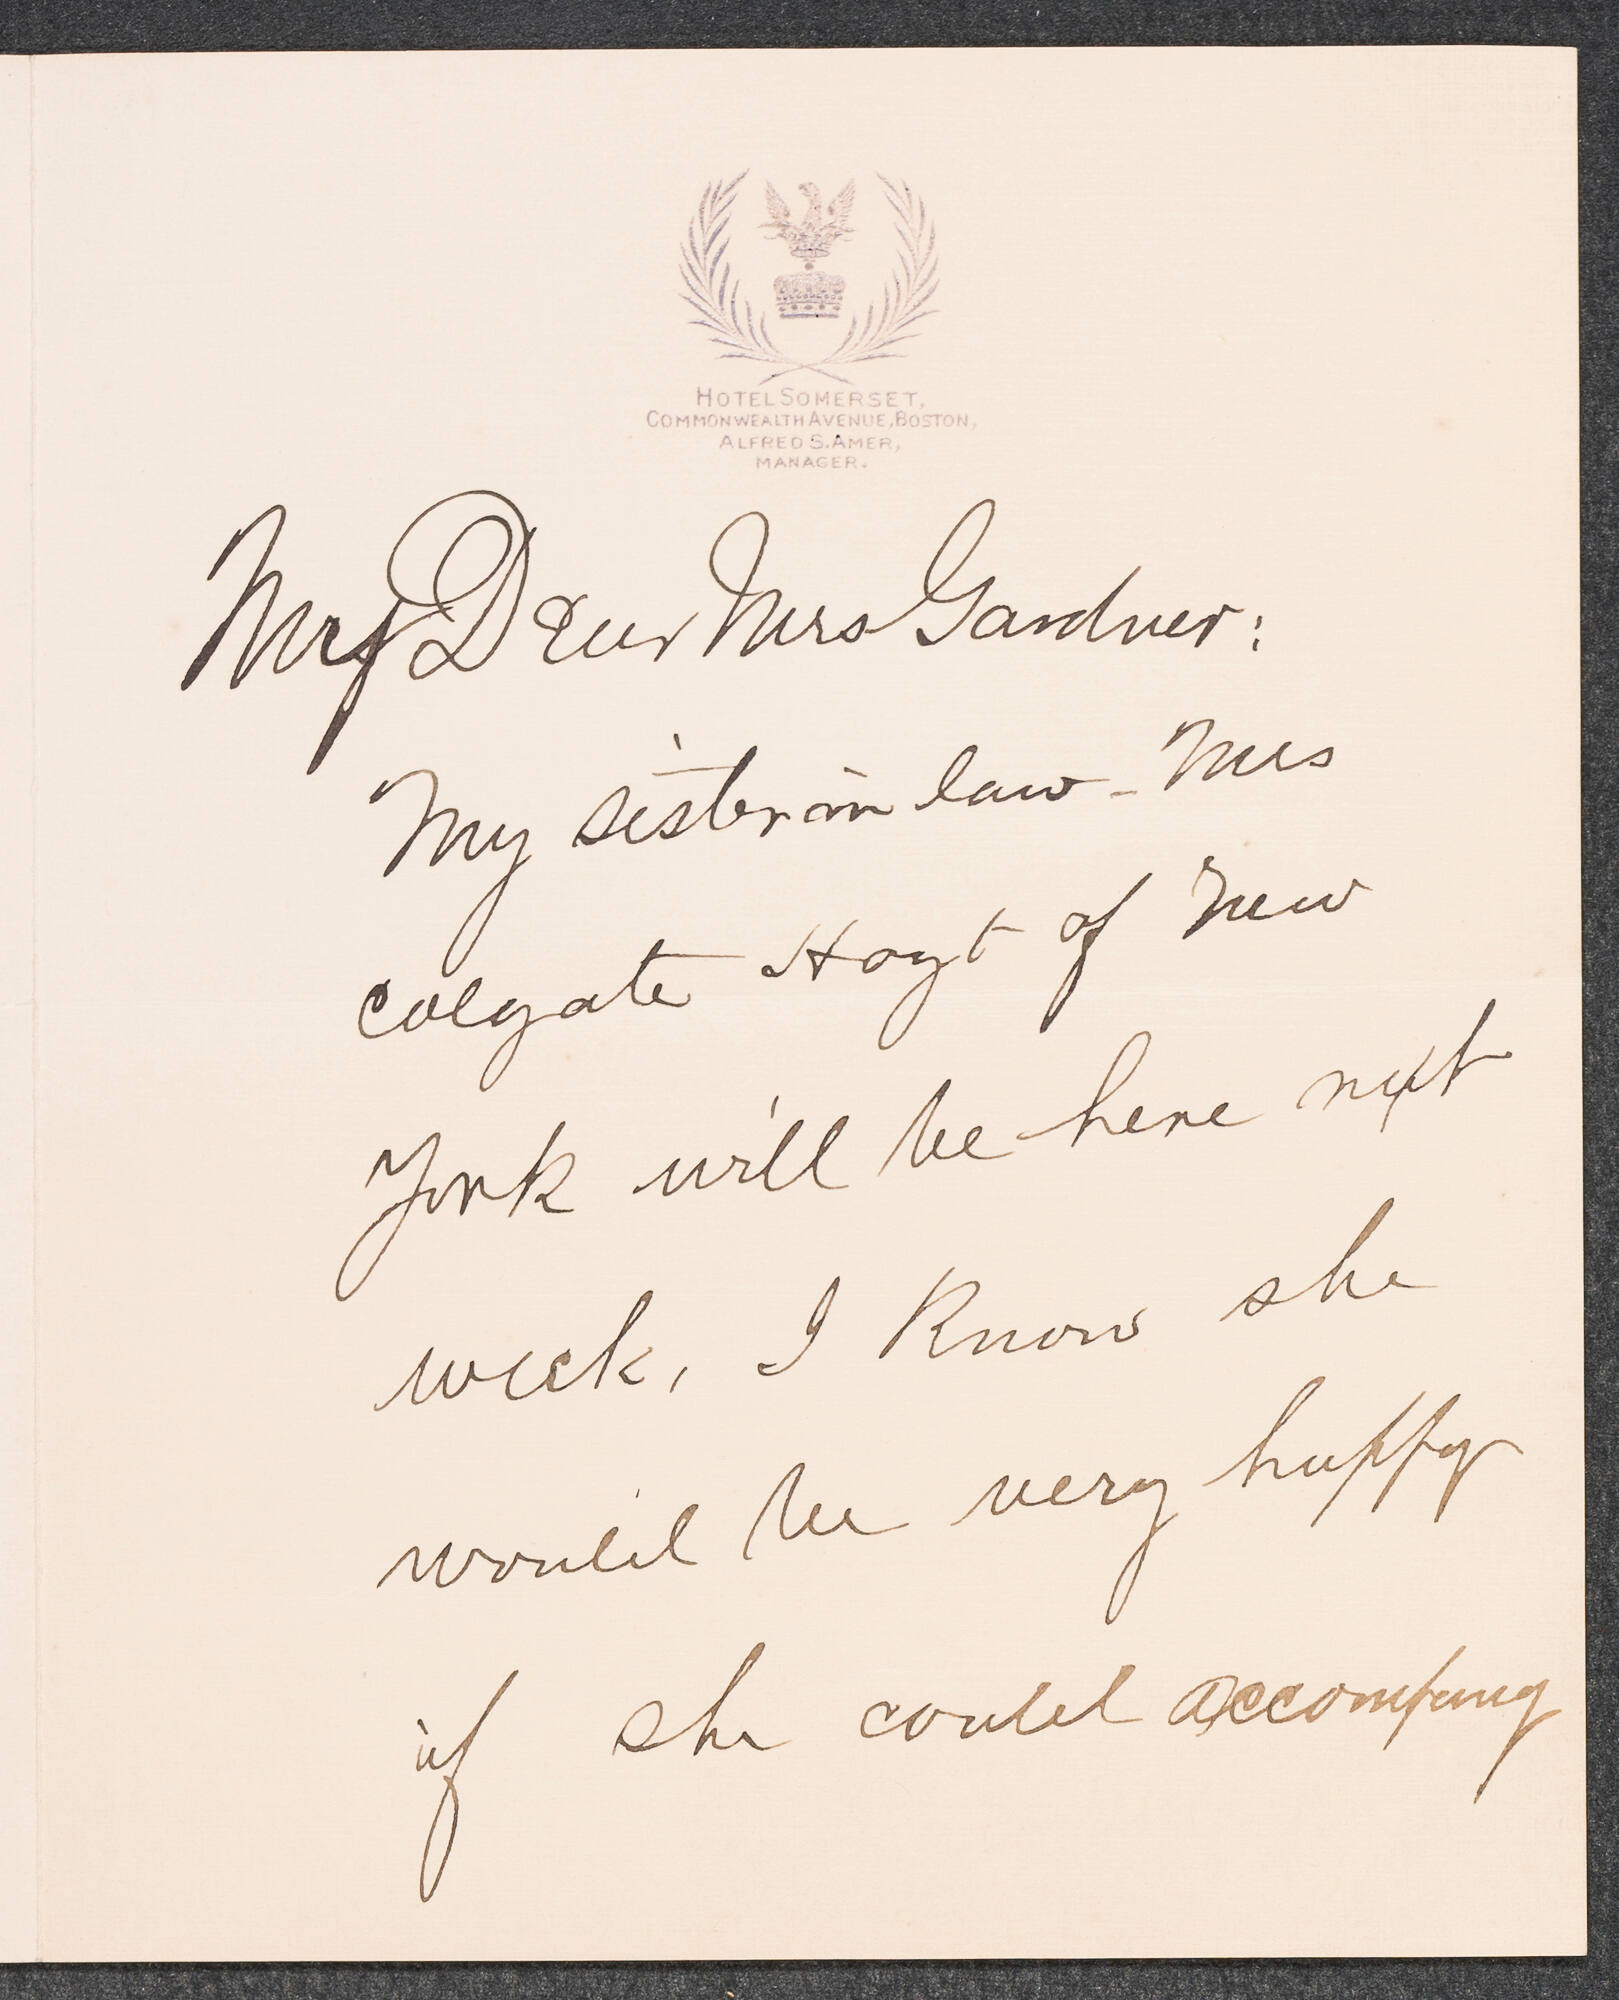 HOTEL SOMERSET,
COMMONWEALTH AVENUE, BOSTON,
ALFRED S. AMER,
MANAGER.
My Dear Mrs Gardner:
My sister in law - Mrs
Colgate Hoyt of New
York will be here next
week, I know she
would be very happy
if she could accompany